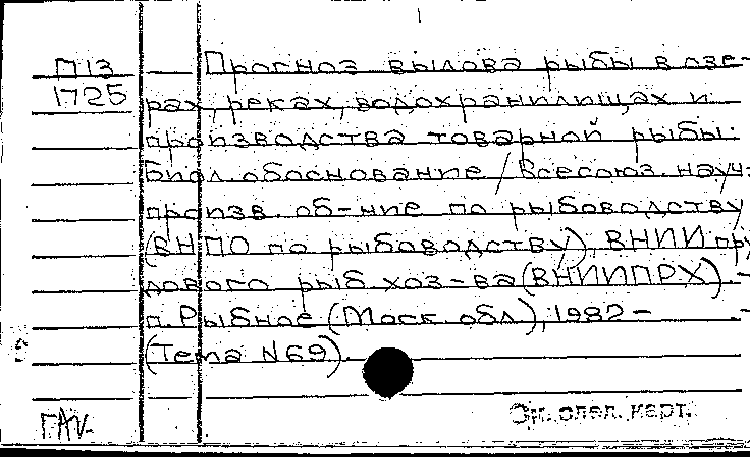 П13 Прогноз вылова рыбы в озе-
1725 рах, реках, водохранилищах и
производства товарной рыбы:
Биол. обоснование / Всесоюз. науч.-
произв. об-ние по рыбоводству
(ВНПО по рыбоводству), ВНИИ пру-
дового рыб. хоз-ва (ВНИИПРХ). -
п. Рыбное (Моск. обл.), 1982 -
(Тема N69).